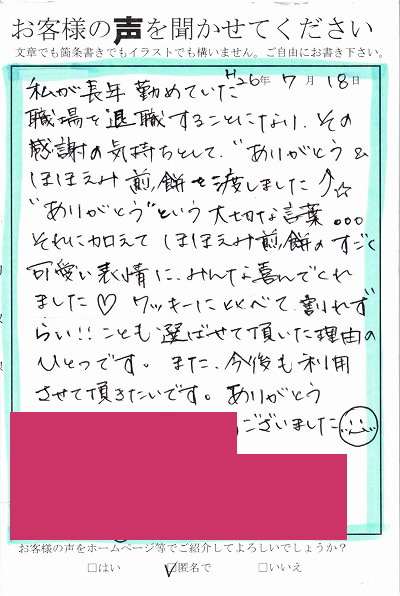 お客様の声を聞かせてください
文章でも箇条書きでもイラストでも構いません。ご自由にお書き下さい。
H26年 7月 18日
私が長年勤めていた
職場を退職することになり、その
感謝の気持ちとして、"ありがとう&
ほほえみ煎餅を渡しました♪☆
"ありがとう"という大切な言葉...
それに加えてほほえみ煎餅のすごく
可愛い表情に、みんな喜んでくれ
ました♡ クッキーにくらべて、割れず
らい!!ことも選ばせて頂いた理由の
ひとつです。また、今後も利用
させて頂きたいです。ありがとう
ございました
お客様の声をホームページ等でご紹介してよろしいでしょうか?
□はい ☑匿名で □いいえ